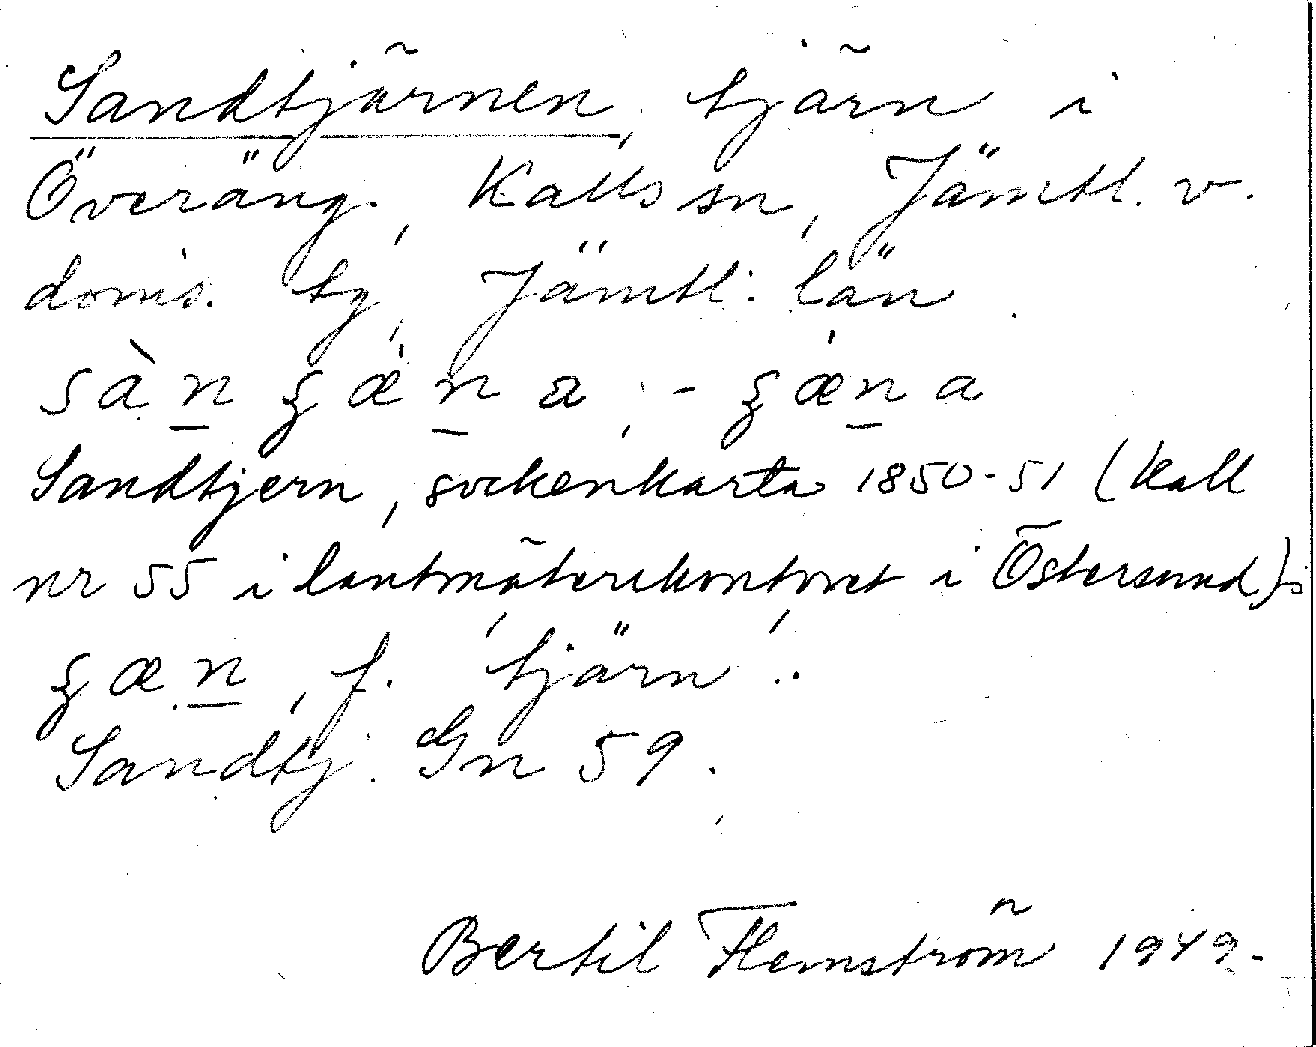 Sandtjärnen, tjärn i
Överäng, Kalls sn, Jämtl. v.
doms. tg, Jämtl: län
sàn̲ ʂæ̀n̲a, -ʂæn̲a
Sandtjern, sockenkarta 1850-51 (Kall
nr 55 i lantmäterikontoret i Östersund);
ʂæn̲, f. tjärn.
Sandtj. Gn 59.
Bertil Flemström 1949.